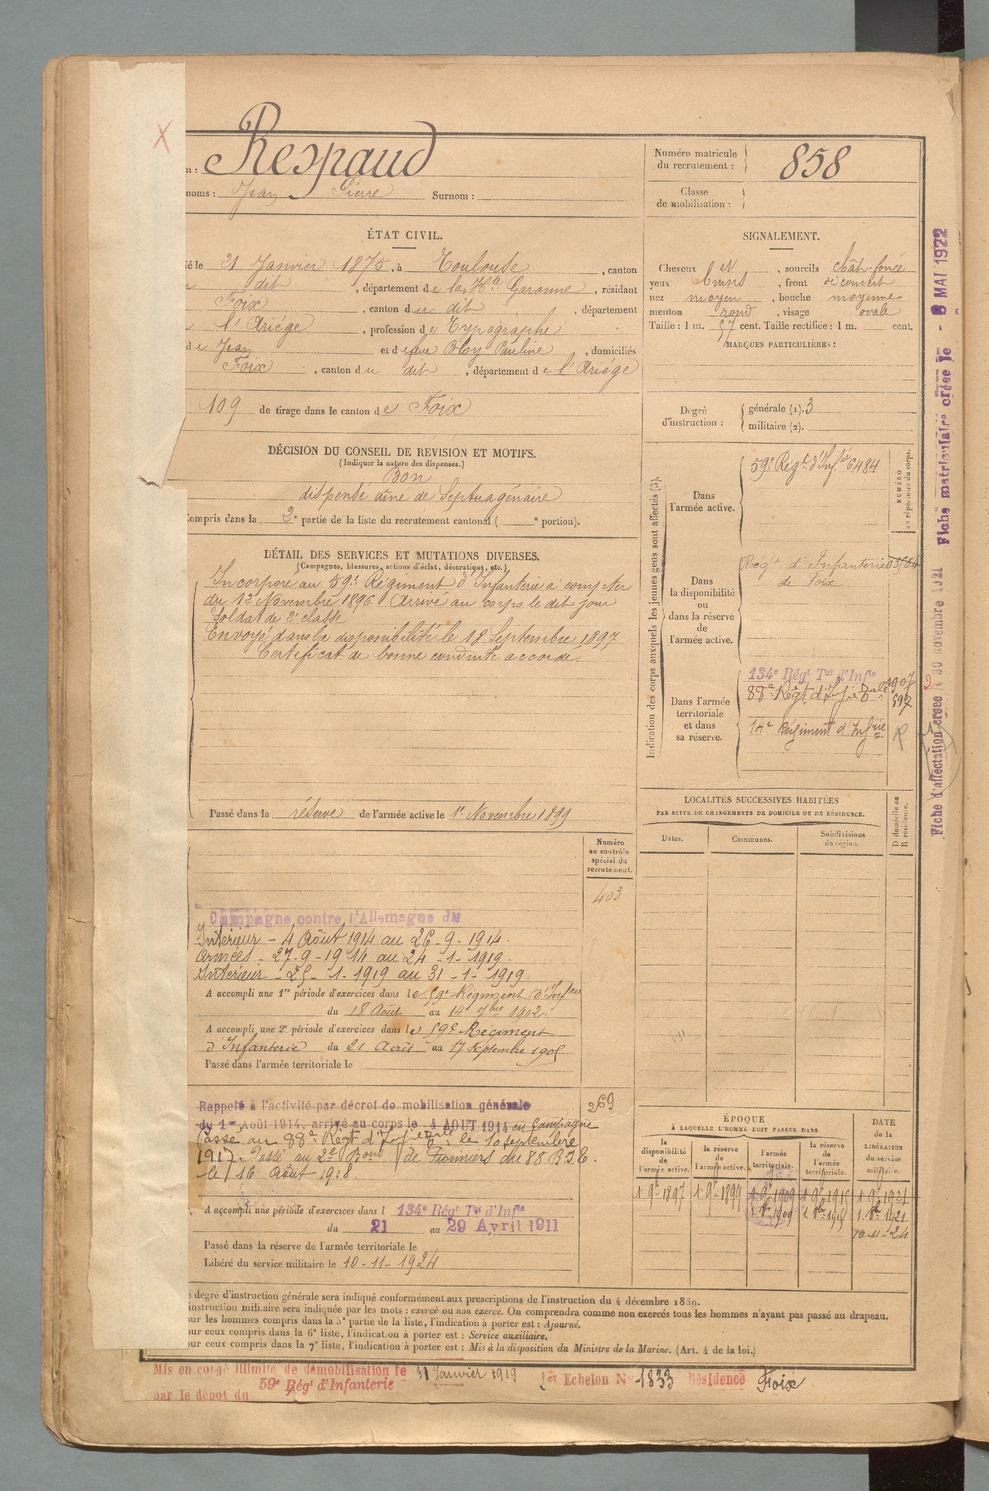 n : Respaud
noms : Jean Pierre Surnom :
Numéro matricule
du recrutement : 858
Classe
de mobilisation :
ÉTAT CIVIL.
Né le 21 Janvier 1875, à Toulouse, canton
dit, département de la Hte Garonne, résidant
Foix, canton du dit, département
l'Ariége, profession de Typographe
de Jean et de feue Bloy Pauline, domiciliés
Foix, canton du dit, département de l'Ariége
109 de tirage dans le canton de Foix
SIGNALEMENT.
Cheveux et, sourcils chât. foncé
yeux bruns, front découvert
nez moyen, bouche moyenne
menton rond, visage ovale
Taille : 1 m. 57 cent. Taille rectifiée : 1 m. cent.
MARQUES PARTICULIÈRES :
Degré
d'instruction : générale (1). 3
militaire (2).
DÉCISION DU CONSEIL DE REVISION ET MOTIFS.
(Indiquer la nature des dispenses.)
Bon
dispensé aîné de Septuagénaire
Compris dans la 2e partie de la liste du recrutement cantonal ( e portion).
DÉTAIL DES SERVICES ET MUTATIONS DIVERSES.
(Campagnes, blessures, actions d'éclat, décorations, etc.)
Incorporé au 59e Régiment d'Infanterie à compter
du 12 Novembre 1896. Arrivé au corps le dit jour
Soldat de 2e classe
Envoyé dans la disponibilité le 18 Septembre 1897
Certificat de bonne conduite accordé.
Passé dans la réserve de l'armée active le 1er Novembre 1899
Indication des corps auxquels les jeunes gens sont affectés (3).
NUMÉRO
au répertoire du corps.
Dans
l'armée active.
59e Régt d'Infie 6484
Dans
la disponibilité
ou
dans la réserve
de
l'armée active.
Régt d'Infanterie
de Foix
Dans l'armée
territoriale
et dans
sa réserve.
134e Régt Tal d'Infie
88e Régt d'Infie
14e Régiment d'Infrie
LOCALITÉS SUCCESSIVES HABITÉES
PAR SUITE DE CHANGEMENTS DE DOMICILE OU DE RÉSIDENCE.
Dates.
Communes.
Subdivisions
de région.
D domicile ou
R résidence.
Numéro
au contrôle
spécial du
recrutement.
403
Campagne contre l'Allemagne du
Intérieur - 4 Août 1914 au 26-9-1914.
Armées - 27-9-1914 au 24-1-1919.
Intérieur - 25-1-1919 au 31-1-1919.
A accompli une 1re période d'exercices dans le 59e Régiment d'Infrie
du 18 Août au 14 7bre 1902
A accompli une 2e période d'exercices dans le 59e Régiment
d'Infanterie du 21 Août au 17 Septembre 1905
Passé dans l'armée territoriale le
Rappelé à l'activité par décret de mobilisation générale
du 1er Août 1914, arrivé au corps le 4 AOUT 1914 en Campagne
269
Passé au 88e Régt d'Infie le 10 septembre
1917. Passé au 2e Bond de Pionniers du 88 R.I.T.
le 16 Août 1918.
A accompli une période d'exercices dans l 134e Régt Tal d'Infie
du 21 au 29 Avril 1911
Passé dans la réserve de l'armée territoriale le
Libéré du service militaire le 10-11-1924
ÉPOQUE
A LAQUELLE L'HOMME DOIT PASSER DANS
la
disponibilité
de
l'armée active.
la réserve
de
l'armée active.
l'armée
territoriale.
la réserve
de
l'armée
territoriale.
DATE
de la
LIBÉRATION
du service
militaire.
1 9e 1897
1 9e 1899
1 9e 1909
1 9e 1915
1 9e 1921
10-11-24
degré d'instruction générale sera indiqué conformément aux prescriptions de l'instruction du 4 décembre 1889.
instruction militaire sera indiquée par les mots : exercé ou non exercé. On comprendra comme non exercés tous les hommes n'ayant pas passé au drapeau.
our les hommes compris dans la 5e partie de la liste, l'indication à porter est : Ajourné.
our ceux compris dans la 6e liste, l'indication à porter est : Service auxiliaire.
our ceux compris dans la 7e liste, l'indication à porter est : Mis à la disposition du Ministre de la Marine. (Art. 4 de la loi.)
Mis en congé illimité de démobilisation le 31 Janvier 1919 1er Echelon No 1833 Résidence Foix
par le dépôt du 59e Régt d'Infanterie
Fiche d'affectation créée le 30 novembre 1921 Fiche matriculaire créée le - 8 MAI 1922